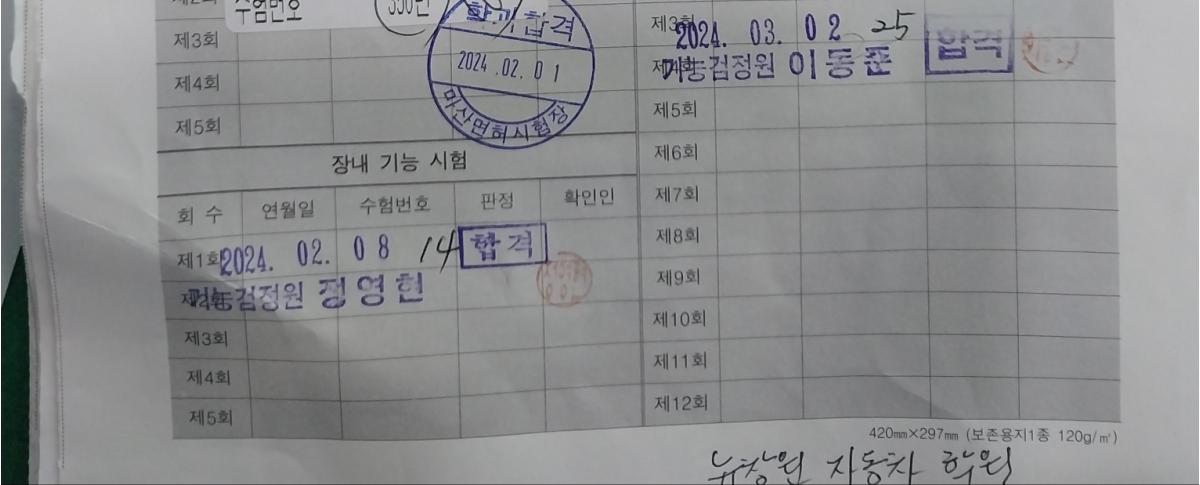 수험번호
제3회
제4회
제5회
학과합격
2024.02.01
마산면허시험장
장내 기능 시험
회 수 연월일 수험번호 판정 확인인
제1회 2024. 02. 08 14 합격
기능검정원 정영헌
제3회
제4회
제5회
제3회
2024. 03. 02 25 합격
기능검정원 이동준
제5회
제6회
제7회
제8회
제9회
제10회
제11회
제12회
420㎜×297㎜ (보존용지1종 120g/㎡)
뉴창원 자동차 학원